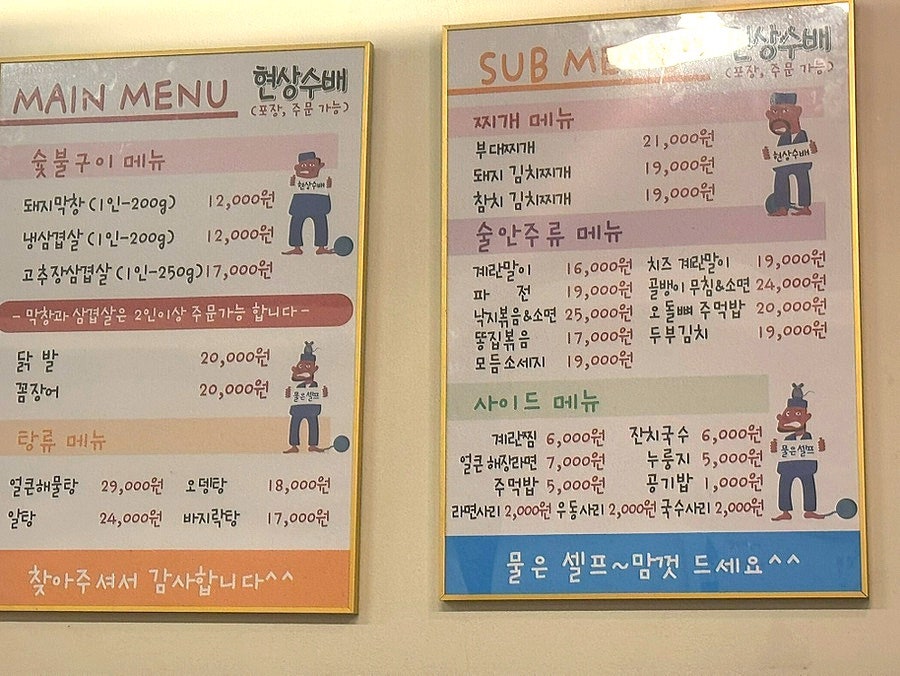 MAIN MENU 현상수배
(포장, 주문 가능)
숯불구이 메뉴
현상수배
돼지막창 (1인-200g) 12,000원
냉삼겹살 (1인-200g) 12,000원
고추장삼겹살 (1인-250g) 17,000원
- 막창과 삼겹살은 2인이상 주문가능 합니다 -
닭 발 20,000원
꼼장어 20,000원
물은셀프
탕류 메뉴
얼큰해물탕 29,000원 오뎅탕 18,000원
알탕 24,000원 바지락탕 17,000원
찾아주셔서 감사합니다^^
SUB ME 현상수배
(포장, 주문 가능)
찌개 메뉴
부대찌개 21,000원
현상수배
돼지 김치찌개 19,000원
참치 김치찌개 19,000원
술안주류 메뉴
계란말이 16,000원 치즈 계란말이 19,000원
파 전 19,000원 골뱅이 무침&소면 24,000원
낙지볶음&소면 25,000원 오돌뼈 주먹밥 20,000원
똥집볶음 17,000원 두부김치 19,000원
모듬소세지 19,000원
사이드 메뉴
계란찜 6,000원 잔치국수 6,000원
물은셀프
얼큰 해장라면 7,000원 누룽지 5,000원
주먹밥 5,000원 공기밥 1,000원
라면사리 2,000원 우동사리 2,000원 국수사리 2,000원
물은 셀프~맘껏 드세요^^